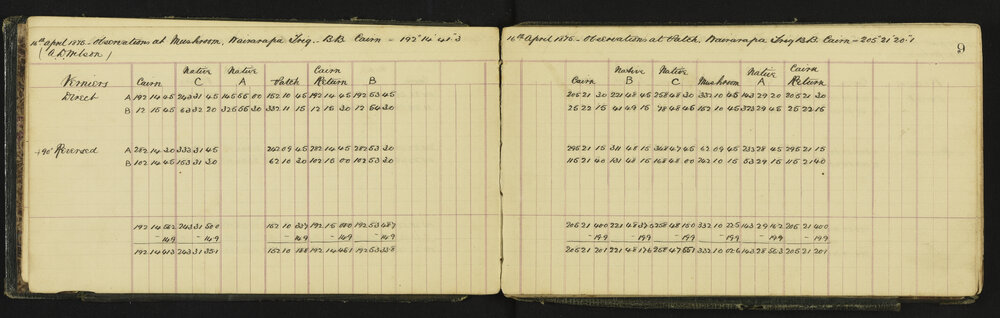 16th April 1875 - Observations at Mushroom, Wairarapa Trig. - B.B. Cairn = 192° 14' 41"3
(A.D. Wilson)
Native Native Cairn
Verniers Cairn C A Patch Return B
Direct A 192 14 45 243 31 45 145 56 00 152 10 45 192 14 45 192 53 45
B 12 15 45 63 32 20 325 56 30 332 11 15 12 15 30 12 54 30
+90° Reversed A 282 14 30 333 31 45 242 09 45 282 14 45 282 53 30
B 102 14 45 153 31 30 62 10 30 102 15 00 102 53 30
192 14 562 243 31 500 152 10 337 192 15 000 192 53 487
- 149 - 149 - 149 - 149 - 149
192 14 413 243 31 351 152 10 188 192 14 451 192 53 338
16th April 1875 - Observations at Patch, Wairarapa Trig B.B. Cairn = 205° 21' 20"1
9
Native Native Native Cairn
Cairn B C Mushroom A Return
205 21 30 221 48 45 258 48 30 332 10 45 143 29 20 205 21 30
25 22 15 41 49 15 78 48 45 152 10 45 323 29 45 25 22 15
295 21 15 311 48 15 348 47 45 62 09 45 233 28 45 295 21 15
115 21 40 131 48 15 168 48 00 242 10 15 53 29 15 115 21 40
205 21 400 221 48 375 258 48 150 332 10 225 143 29 162 205 21 400
- 199 - 199 - 199 - 199 - 199 - 199
205 21 201 221 48 176 258 47 551 332 10 026 143 28 563 205 21 201